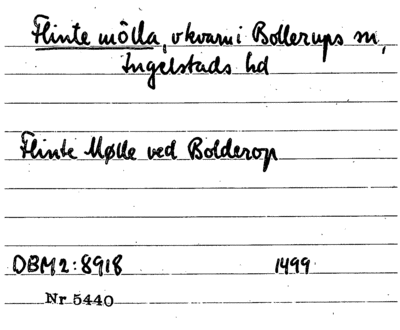 Flinte mölla, vkvarn i Bollerups sn,
Ingelstads hd
Flinte Mølle ved Bolderop
DBM 2:8918 1499
Nr 5440